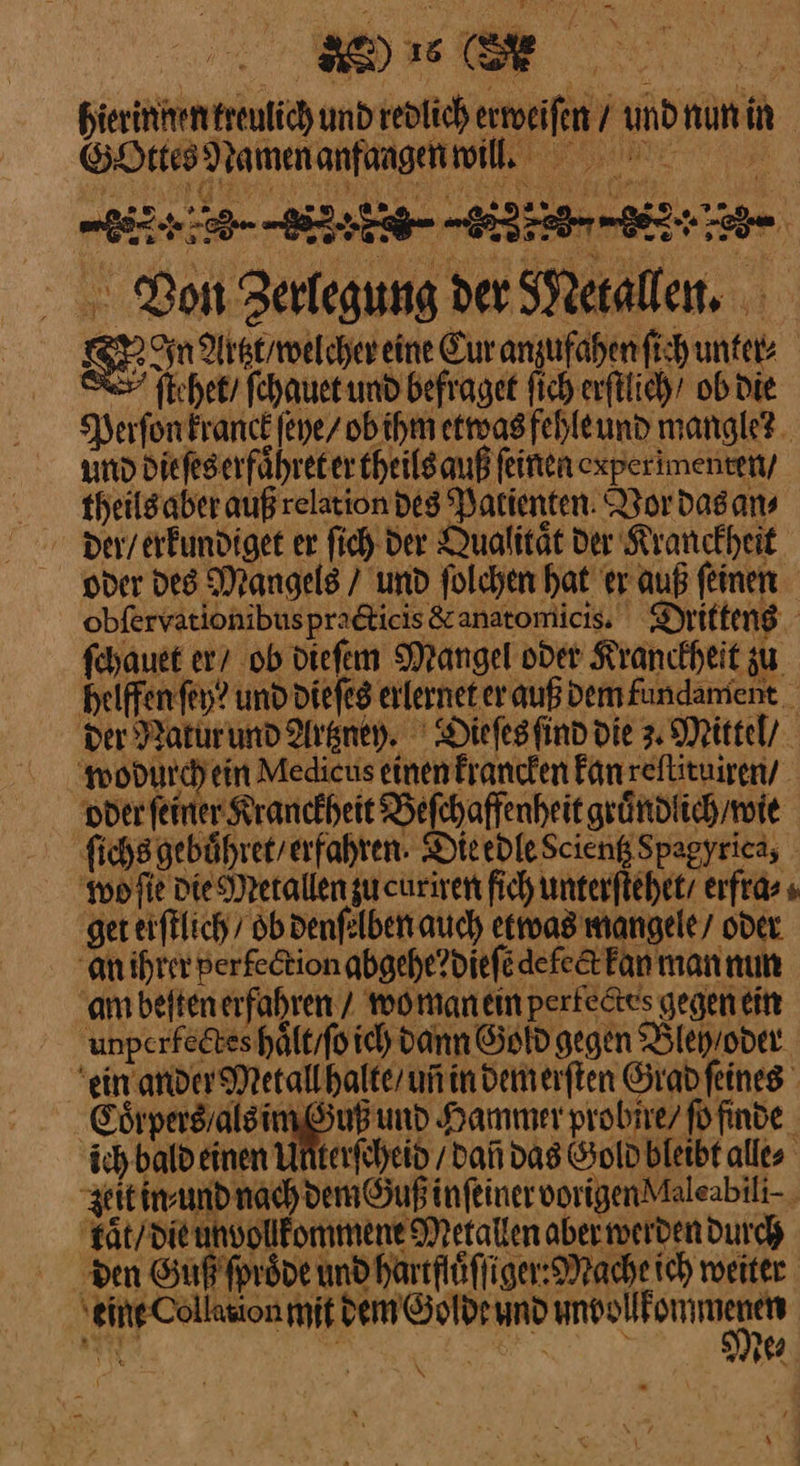 ) 16 (
hierinnen treulich und redlich erweiſen / und nun in
GOttes Namen anfangen will.
Von Zerlegung der Metallen.
EIn Artzt / welcher eine Cur anzufahen ſich unter⸗
ſtehet / ſchauet und befraget ſich erſtlich / ob die
Perſon kranck ſeye / ob ihm etwas fehle und mangle?
und dieſes erfaͤhret er theils auß ſeinen experimenten /
theils aber auß relation des Patienten. Vor das an⸗
der / erkundiget er ſich der Qualitaͤt der Kranckheit
oder des Mangels / und ſolchen hat er auß ſeinen
obſervationibus practicis & anatomicis. Drittens
ſchauet er / ob dieſem Mangel oder Kranckheit zu
helffen ſey? und dieſes erlernet er auß dem fundament
der Natur und Artzney. Dieſes ſind die 3. Mittel /
wodurch ein Medicus einen krancken kan reſtituiren /
oder ſeiner Kranckheit Beſchaffenheit gruͤndlich / wie
ſichs gebuͤhret / erfahren. Die edle Scientz Spagyrica,
wo ſie die Metallen zu curiren ſich unterſtehet / erfra⸗
get erſtlich / ob denſelben auch etwas mangele / oder
an ihrer perfection abgehe? dieſe defect kan man nun
am beſten erfahren / wo man ein perfectes gegen ein
unperfectes haͤlt / ſo ich dann Gold gegen Bley / oder
ein ander Metall halte / uñ in dem erſten Grad ſeines
Coͤrpers / als im Guß und Hammer probire / ſo finde
ich bald einen Unterſcheid / dañ das Gold bleibt alle⸗
zeit in⸗und nach dem Guß in ſeiner vorigen Maleabili-
taͤt / die unvollkommene Metallen aber werden durch
den Guß ſproͤde und hartfluͤſſiger: Mache ich weiter
eine Collation mit dem Golde und unvollkommenen
Me⸗